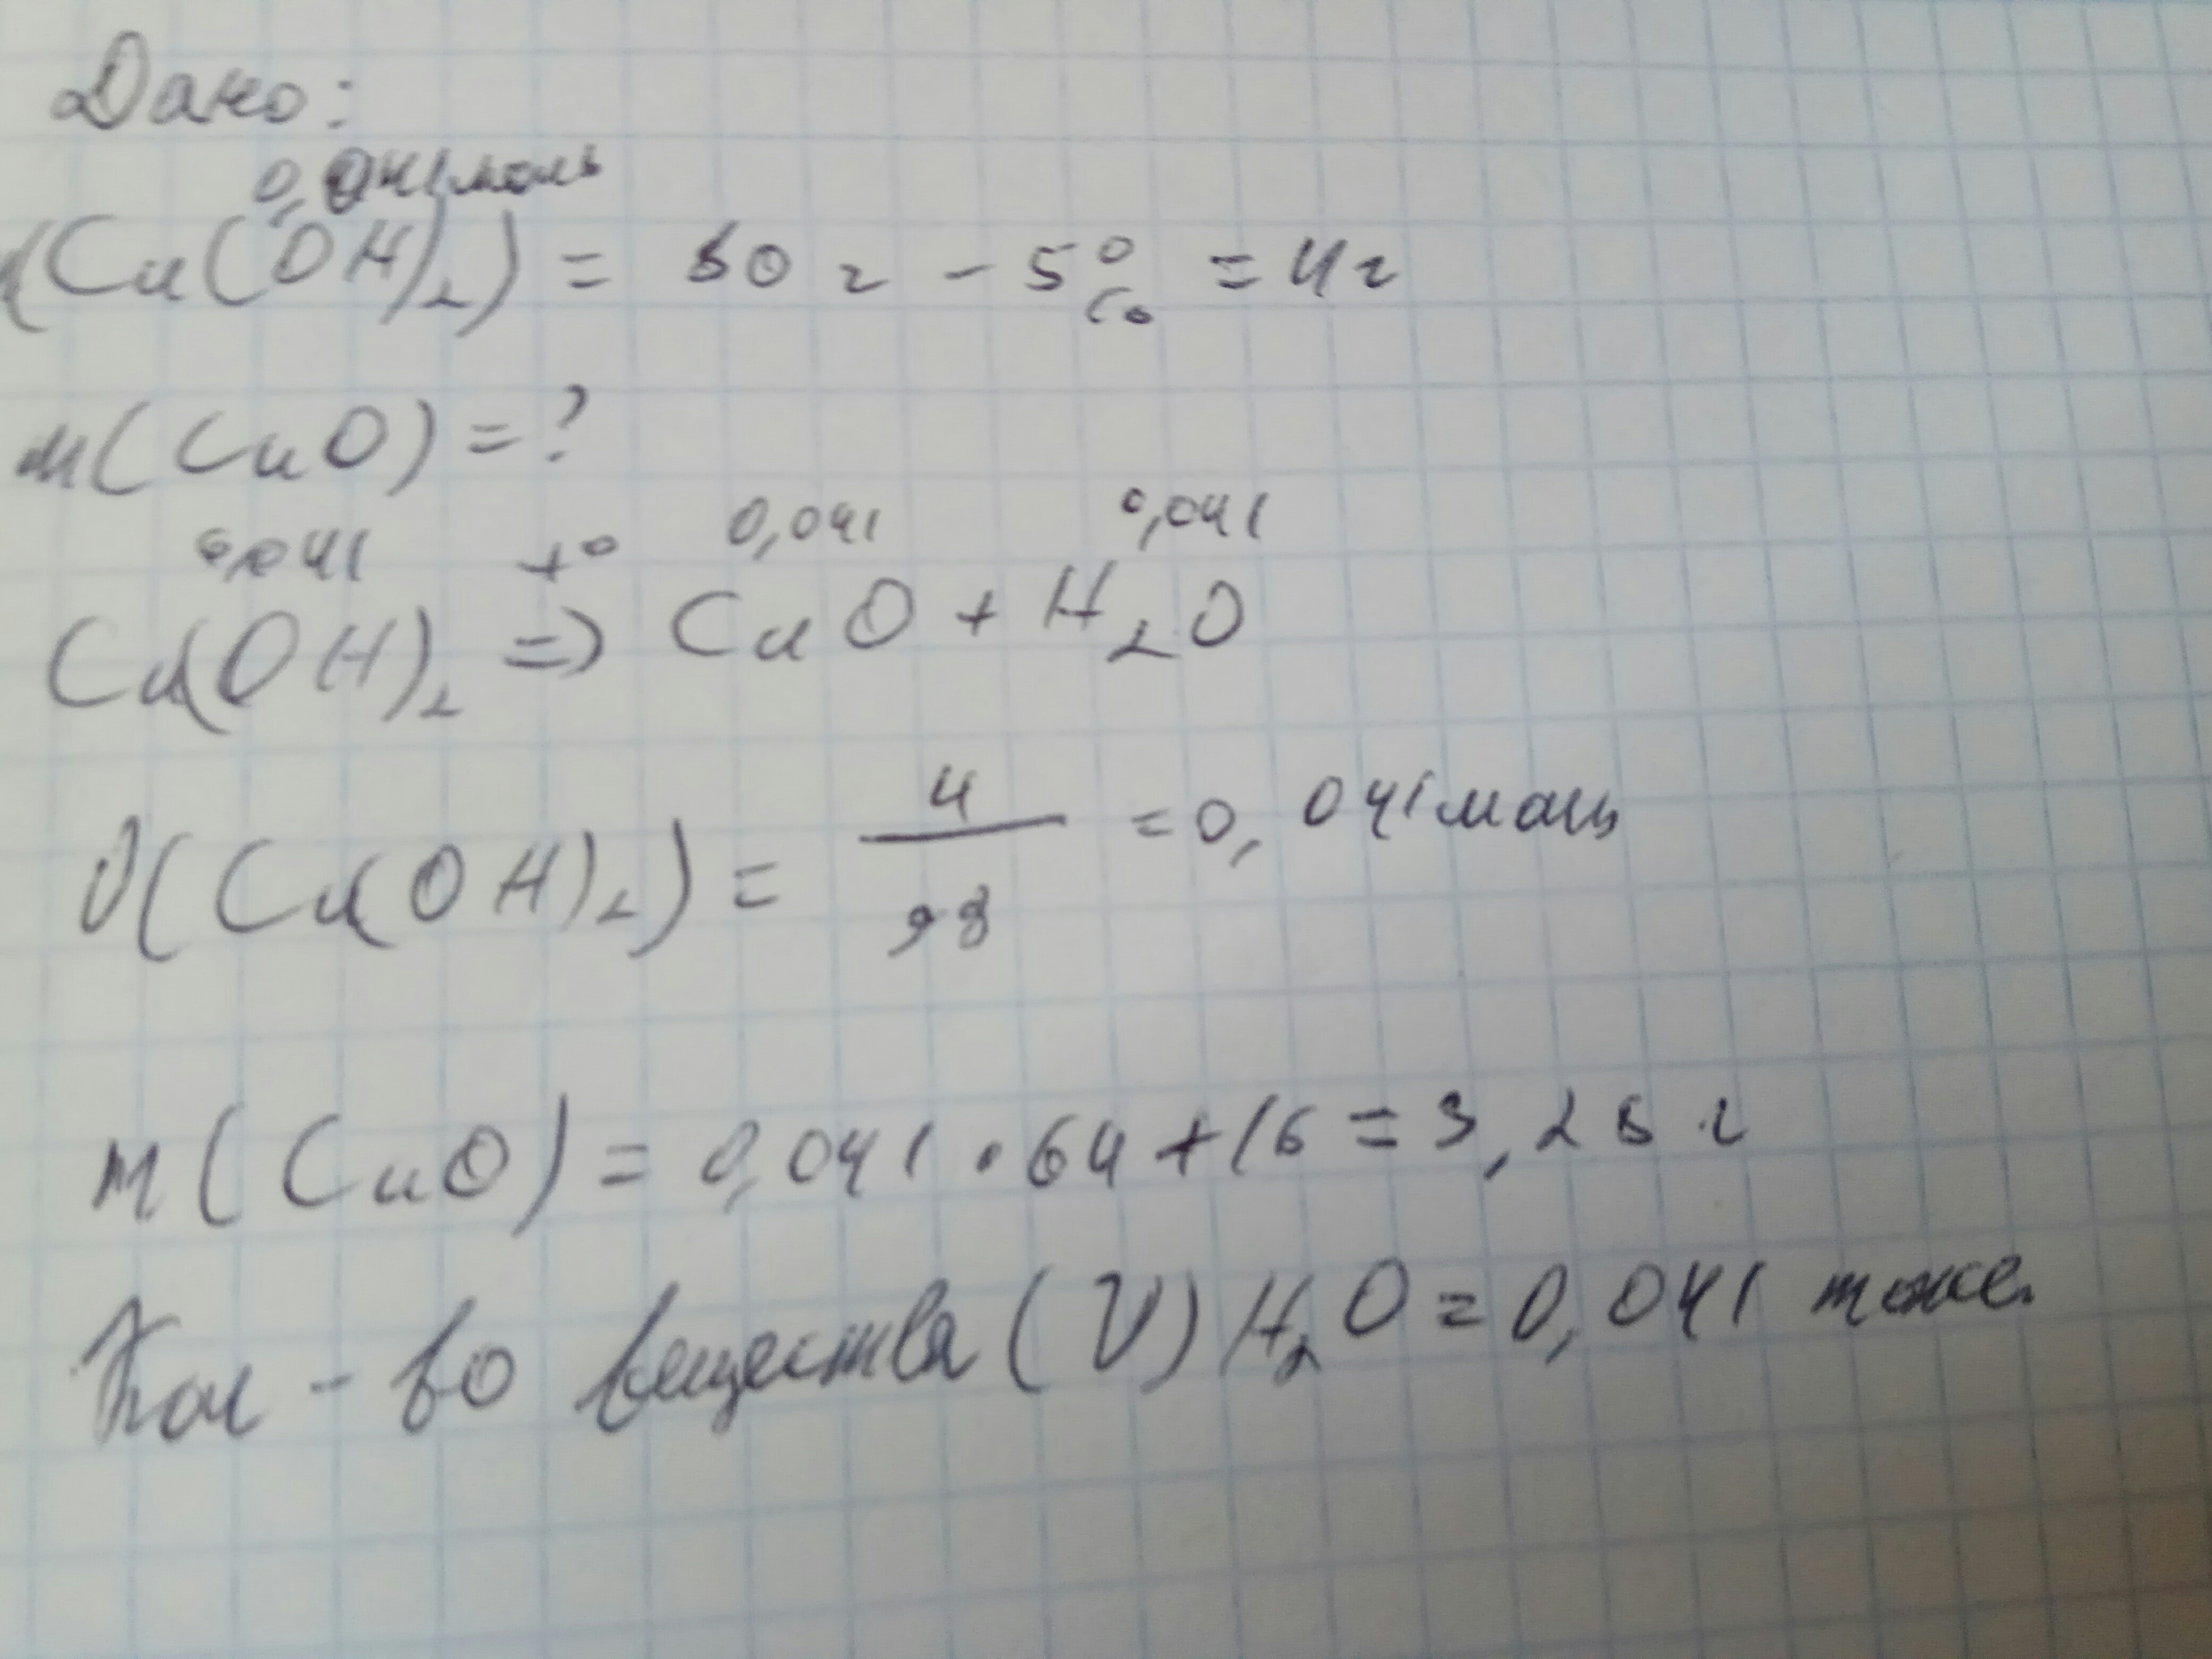 Дано:
0,041моль
(Cu(OH)2) = 80 г - 5% = 4г
m(CuO) = ?
0,041 t° 0,041 0,041
Cu(OH)2 => CuO + H2O
V(Cu(OH)2) = 4/98 = 0,041моль
m(CuO) = 0,041 • 64 + 16 = 3,28 г
Кол-во вещества (V) H2O = 0,041 тоже.